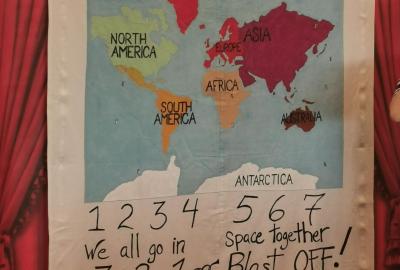 NORTH
AMERICA
EUROPE
ASIA
AFRICA
SOUTH
AMERICA
AUSTRALIA
ANTARCTICA
1 2 3 4 5 6 7
We all go in Space together
Blast OFF!